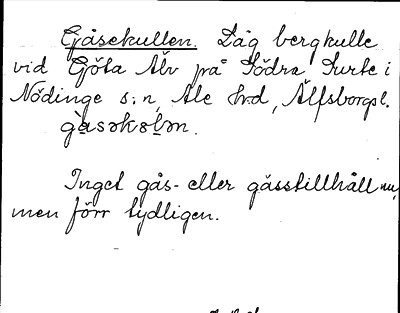 Gåsekullen. Låg bergkulle
vid Göta Älv på Södra Surte i
Nödinge s:n, Ale hrd, Älfsborgs l.
gåsəkɵlən.
Inget gås- eller gässtillhåll nu,
men förr tydligen.